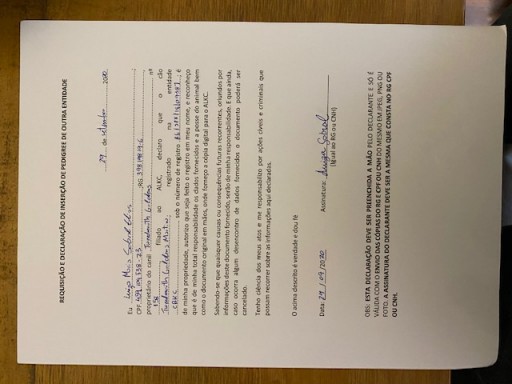 REQUISIÇÃO E DECLARAÇÃO DE INSERÇÃO DE PEDIGREE DE OUTRA ENTIDADE
29 de setembro 2020
Eu
CPF RG
proprietário do canil nº
filiado ao ALKC, declaro que o cão
registrado na entidade
CBKC sob o número de registro É
de minha propriedade, autorizo que seja feito o registro em meu nome, e reconheço
que é de minha total responsabilidade os dados fornecidos e a posse do animal bem
como o documento original em mãos, onde forneço a cópia digital para o ALKC.
Sabendo-se que quaisquer causas ou consequências futuras recorrentes, oriundos por
informações deste documento fornecido, serão de minha responsabilidade. E que ainda,
caso ocorra algum desencontro de dados fornecidos o documento poderá ser
cancelado.
Tenho ciência dos meus atos e me responsabilizo por ações cíveis e criminais que
possam recorrer sobre as informações aqui declaradas.
O acima descrito é verdade e dou fé
Data: 29/09/2020 Assinatura:
(Igual ao RG ou CNH)
OBS: ESTA DECLARAÇÃO DEVE SER PREENCHIDA A MÃO PELO DECLARANTE E SÓ É
VÁLIDA COM O ENVIO DAS CÓPIAS DO RG E CPF OU CNH DO MESMO EM JPEG, PNG OU
FOTO. A ASSINATURA DO DECLARANTE DEVE SER A MESMA QUE CONSTA NO RG CPF
OU CNH.